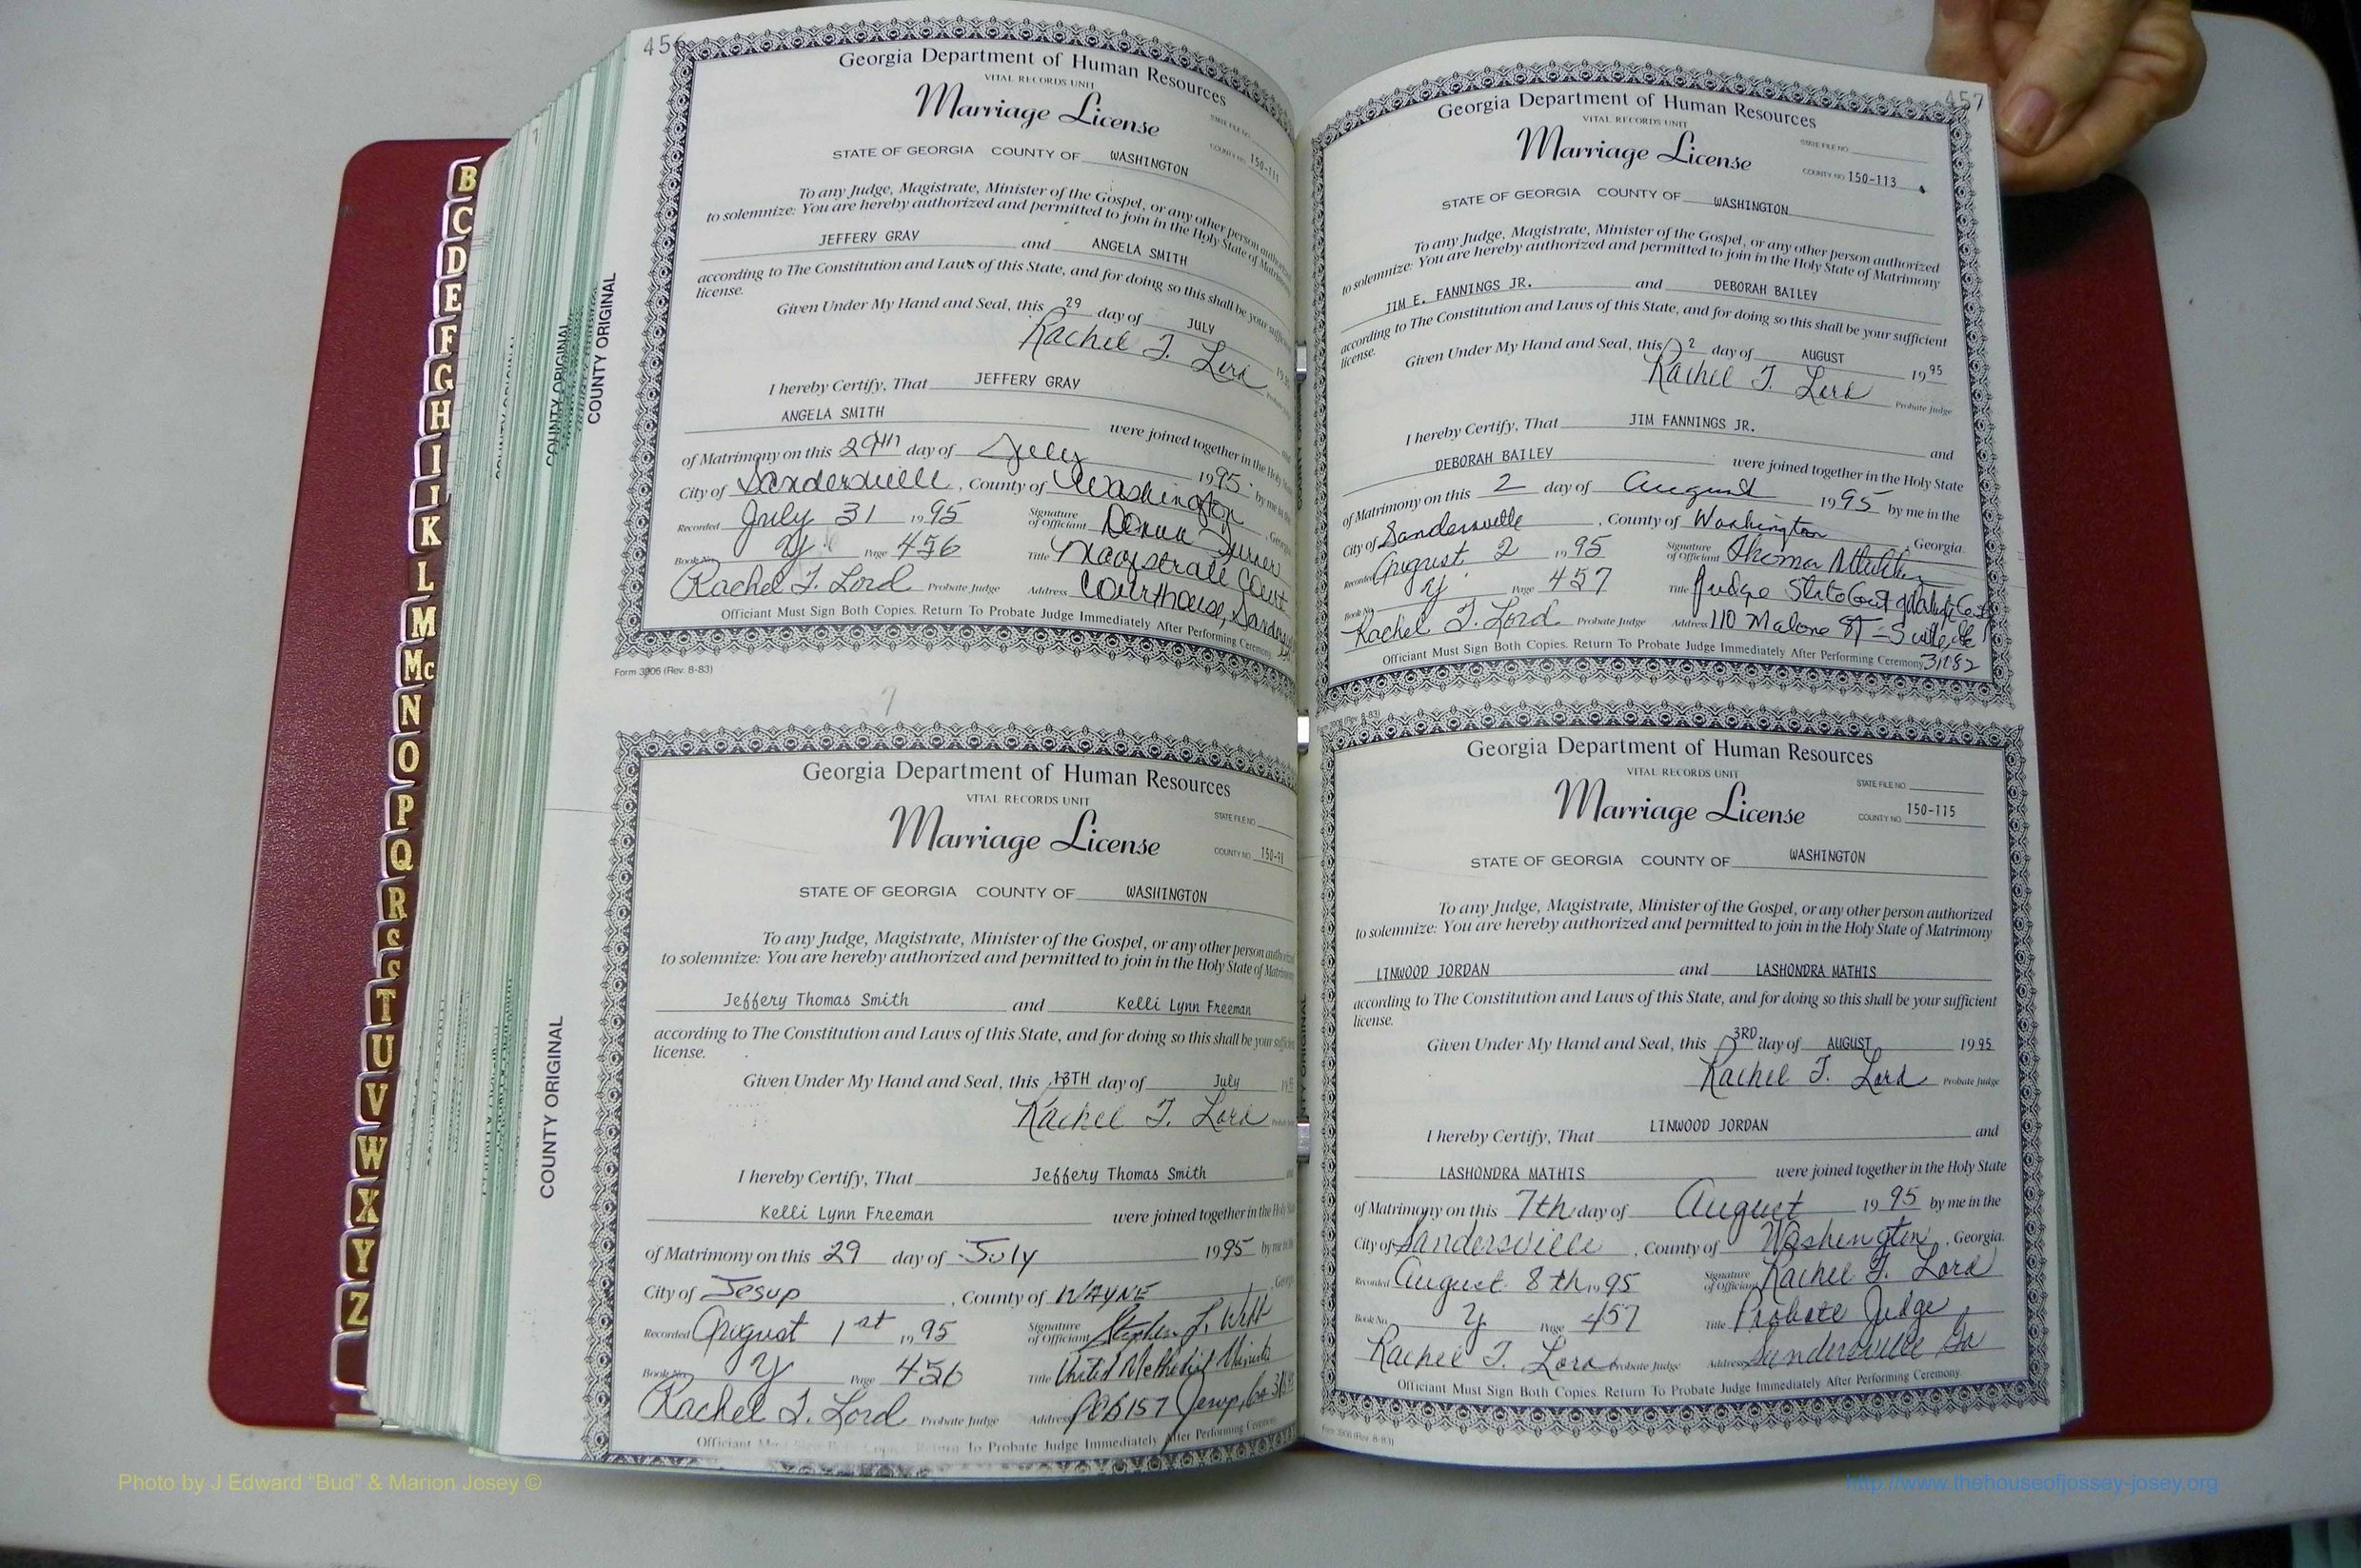 456
Georgia Department of Human Resources
VITAL RECORDS UNIT
Marriage License
STATE FILE NO.
COUNTY NO. 150-111
STATE OF GEORGIA COUNTY OF WASHINGTON
To any Judge, Magistrate, Minister of the Gospel, or any other person authorized
to solemnize: You are hereby authorized and permitted to join in the Holy State of Matrimony
JEFFERY GRAY and ANGELA SMITH
according to The Constitution and Laws of this State, and for doing so this shall be your sufficient
license.
Given Under My Hand and Seal, this 29 day of JULY
Rachel T. Lord
I hereby Certify, That JEFFERY GRAY
ANGELA SMITH were joined together in the Holy State
of Matrimony on this 29th day of July 1995 by me in the
City of Sandersville, County of Washington, Georgia
Recorded July 31 1995 Signature of Officiant Donna Turner
Book No. Y Page 456 Title Magistrate Court
Rachel T. Lord Probate Judge Address Courthouse,
Officiant Must Sign Both Copies. Return To Probate Judge Immediately After Performing Ceremony
Form 3906 (Rev. 8-83)
COUNTY ORIGINAL
COUNTY ORIGINAL
COUNTY ORIGINAL
Georgia Department of Human Resources
VITAL RECORDS UNIT
Marriage License
STATE FILE NO.
COUNTY NO. 150-
STATE OF GEORGIA COUNTY OF WASHINGTON
To any Judge, Magistrate, Minister of the Gospel, or any other person
to solemnize: You are hereby authorized and permitted to join in the Holy State of Matrimony
Jeffery Thomas Smith and Kelli Lynn Freeman
according to The Constitution and Laws of this State, and for doing so this shall be your
license.
Given Under My Hand and Seal, this 13TH day of July
Rachel T. Lord
I hereby Certify, That Jeffery Thomas Smith
Kelli Lynn Freeman were joined together in the Holy
of Matrimony on this 29 day of July 1995 by me in
City of Jesup, County of WAYNE
Recorded August 1st 1995 Signature of Officiant Stephen L. Webb
Book No. Y Page 456 Title United Methodist Minister
Rachel T. Lord Probate Judge Address POB 157 Jesup, Ga
Officiant Must Sign Both Copies Return To Probate Judge Immediately After Performing Ceremony
COUNTY ORIGINAL
457
Georgia Department of Human Resources
VITAL RECORDS UNIT
Marriage License
STATE FILE NO.
COUNTY NO. 150-113
STATE OF GEORGIA COUNTY OF WASHINGTON
To any Judge, Magistrate, Minister of the Gospel, or any other person authorized
to solemnize: You are hereby authorized and permitted to join in the Holy State of Matrimony
JIM E. FANNINGS JR. and DEBORAH BAILEY
according to The Constitution and Laws of this State, and for doing so this shall be your sufficient
license.
Given Under My Hand and Seal, this 2 day of AUGUST 1995
Rachel T. Lord Probate Judge
I hereby Certify, That JIM FANNINGS JR. and
DEBORAH BAILEY were joined together in the Holy State
of Matrimony on this 2 day of August 1995 by me in the
City of Sandersville, County of Washington, Georgia.
Recorded August 2 1995 Signature of Officiant
Book No. Y Page 457 Title Judge State Court
Rachel T. Lord Probate Judge Address 110 Malone ST -
Officiant Must Sign Both Copies. Return To Probate Judge Immediately After Performing Ceremony 31082
Georgia Department of Human Resources
VITAL RECORDS UNIT
Marriage License
STATE FILE NO.
COUNTY NO. 150-115
STATE OF GEORGIA COUNTY OF WASHINGTON
To any Judge, Magistrate, Minister of the Gospel, or any other person authorized
to solemnize: You are hereby authorized and permitted to join in the Holy State of Matrimony
LINWOOD JORDAN and LASHONDRA MATHIS
according to The Constitution and Laws of this State, and for doing so this shall be your sufficient
license.
Given Under My Hand and Seal, this 3RD day of AUGUST 1995
Rachel T. Lord Probate Judge
I hereby Certify, That LINWOOD JORDAN and
LASHONDRA MATHIS were joined together in the Holy State
of Matrimony on this 7th day of August 1995 by me in the
City of Sandersville, County of Washington, Georgia.
Recorded August 8th 1995 Signature of Officiant Rachel T. Lord
Book No. Y Page 457 Title Probate Judge
Rachel T. Lord Probate Judge Address Sandersville Ga
Officiant Must Sign Both Copies. Return To Probate Judge Immediately After Performing Ceremony.
B
C
D
E
F
G
H
I
J
K
L
M
Mc
N
O
P
Q
R
S
T
U
V
W
X
Y
Z
Photo by J Edward “Bud” & Marion Josey ©
http://www.thehouseofjossey-josey.org